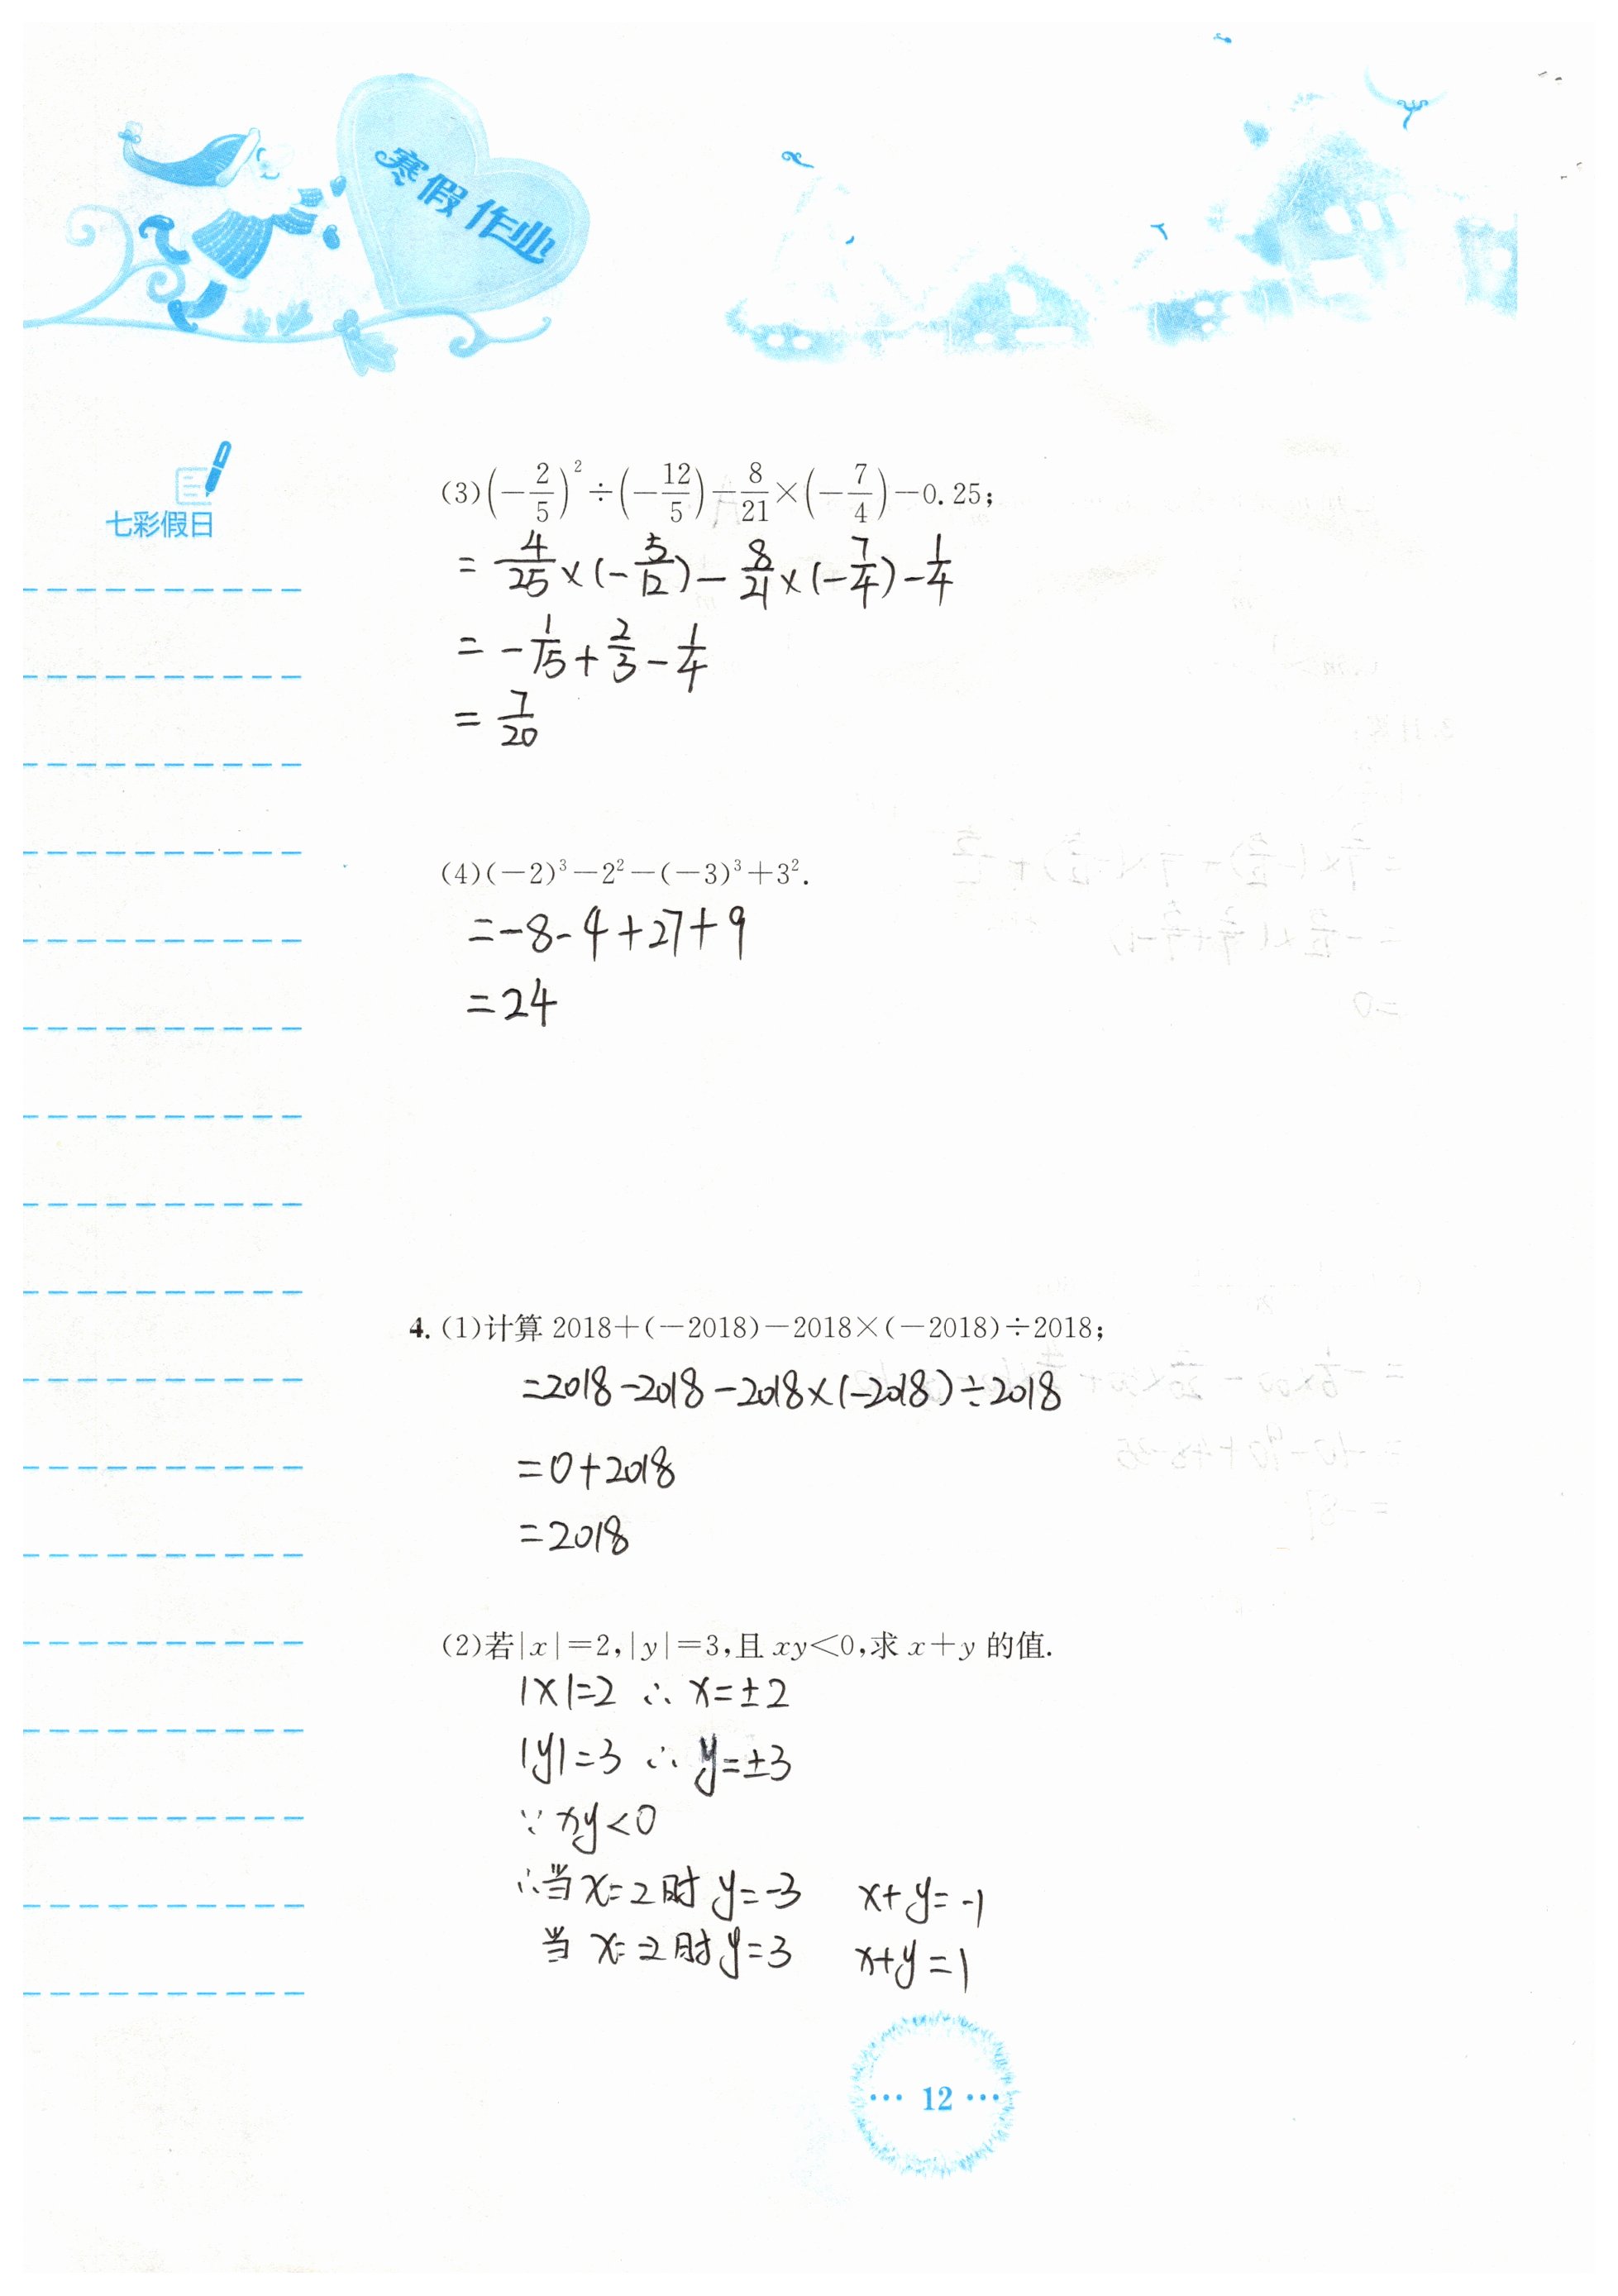 寒假作业
七彩假日
(3)(-2/5)²÷(-12/5)-8/21×(-7/4)-0.25;
=4/25×(-5/12)-8/21×(-7/4)-1/4
=-1/15+2/3-1/4
=7/20
(4)(-2)³-2²-(-3)³+3².
=-8-4+27+9
=24
4.(1)计算 2018+(-2018)-2018×(-2018)÷2018;
=2018-2018-2018×(-2018)÷2018
=0+2018
=2018
(2)若|x|=2,|y|=3,且 xy<0,求 x+y 的值.
|x|=2 ∴ x=±2
|y|=3 ∴ y=±3
∵ xy<0
∴当x=2时 y=-3 x+y=-1
当 x=-2时y=3 x+y=1
··· 12 ···